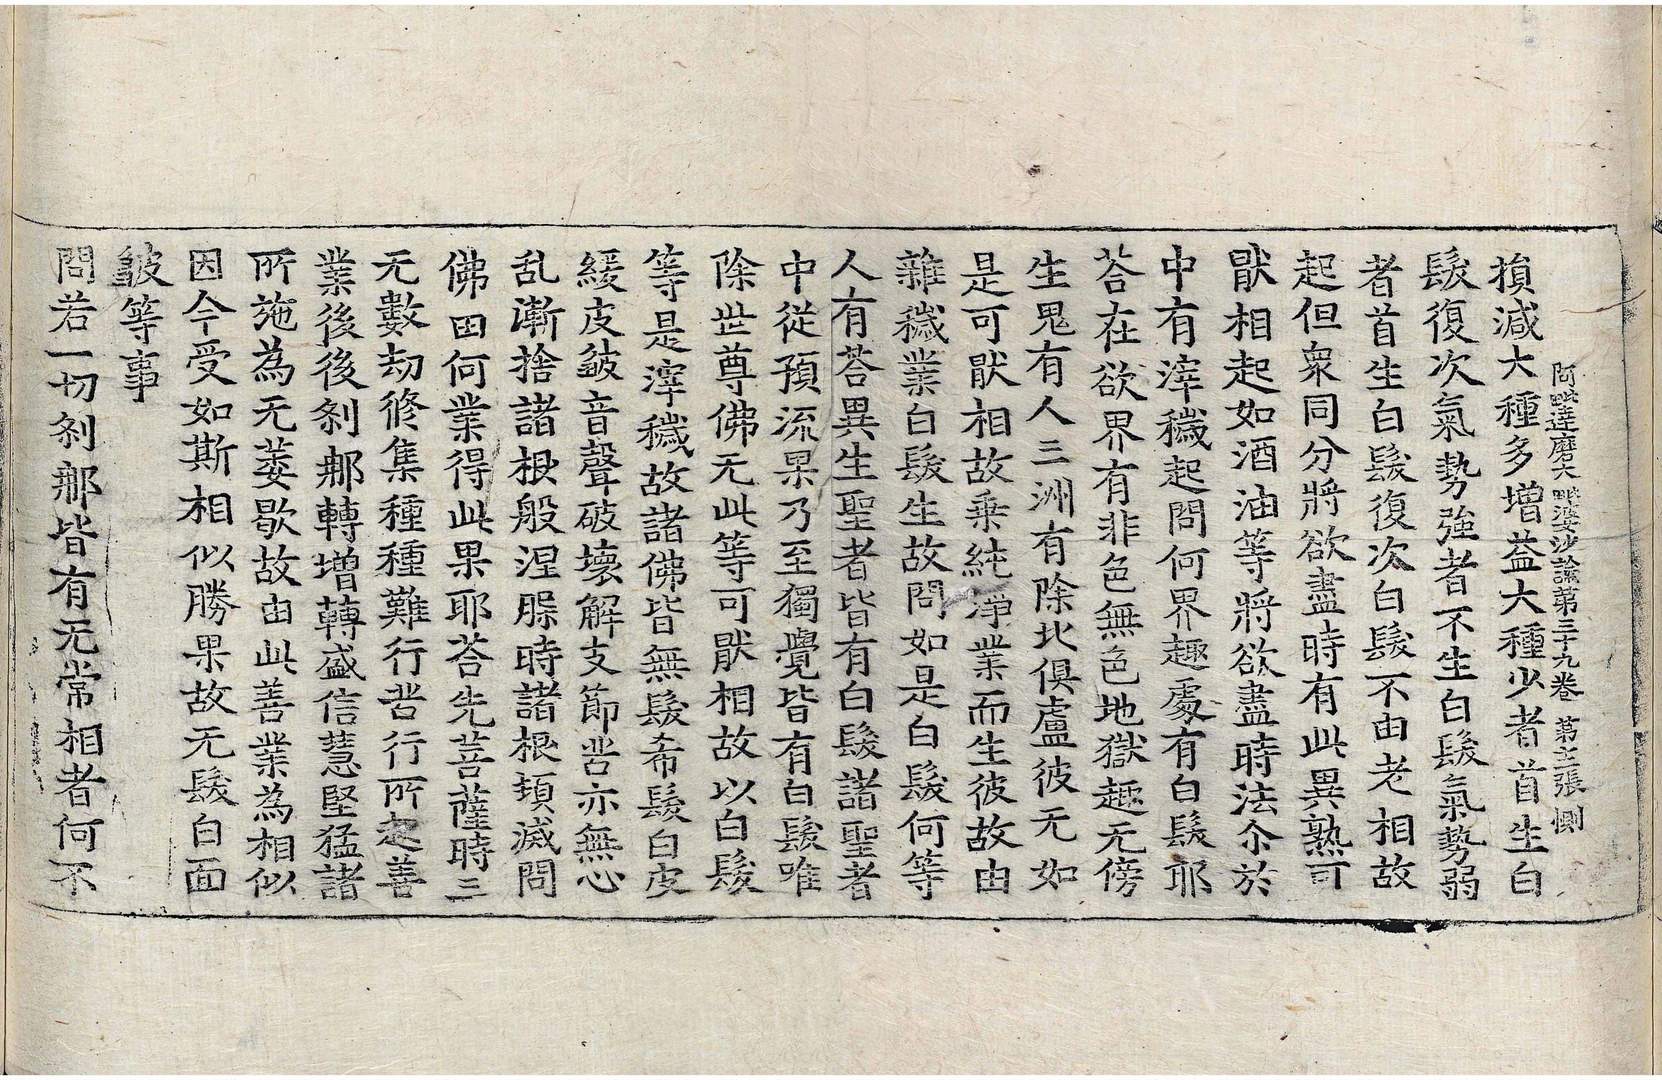 阿毗達磨大毗婆沙論第三十九卷 第主張 惻
損減大種多増益大種少者首生白
髮復次氣勢強者不生白髮氣勢弱
者首生白髮復次白髮不由老相故
起但衆同分將欲盡時有此異熟可
猒相起如酒油等將欲盡時法尒於
中有滓穢起問何界趣處有白髮耶
荅在欲界有非色無色地獄趣无傍
生鬼有人三洲有除北俱盧彼无如
是可猒相故乗純淨業而生彼故由
雜穢業白髮生故問如是白髮何等
人有荅異生聖者皆有白髮諸聖者
中從預流果乃至獨覺皆有白髮唯
除世尊佛无此等可猒相故以白髮
等是滓穢故諸佛皆無髮希髮白皮
緩皮皺音聲破壞解支節苦亦無心
乱漸捨諸根般涅槃時諸根頓滅問
佛田何業得此果耶荅先菩薩時三
无數劫修集種種難行苦行所起善
業後後刹那轉增轉盛信慧堅猛諸
所施為无萎歇故由此善業為相似
因今受如斯相似勝果故无髮白面
皺等事
問若一切刹那皆有无常相者何不